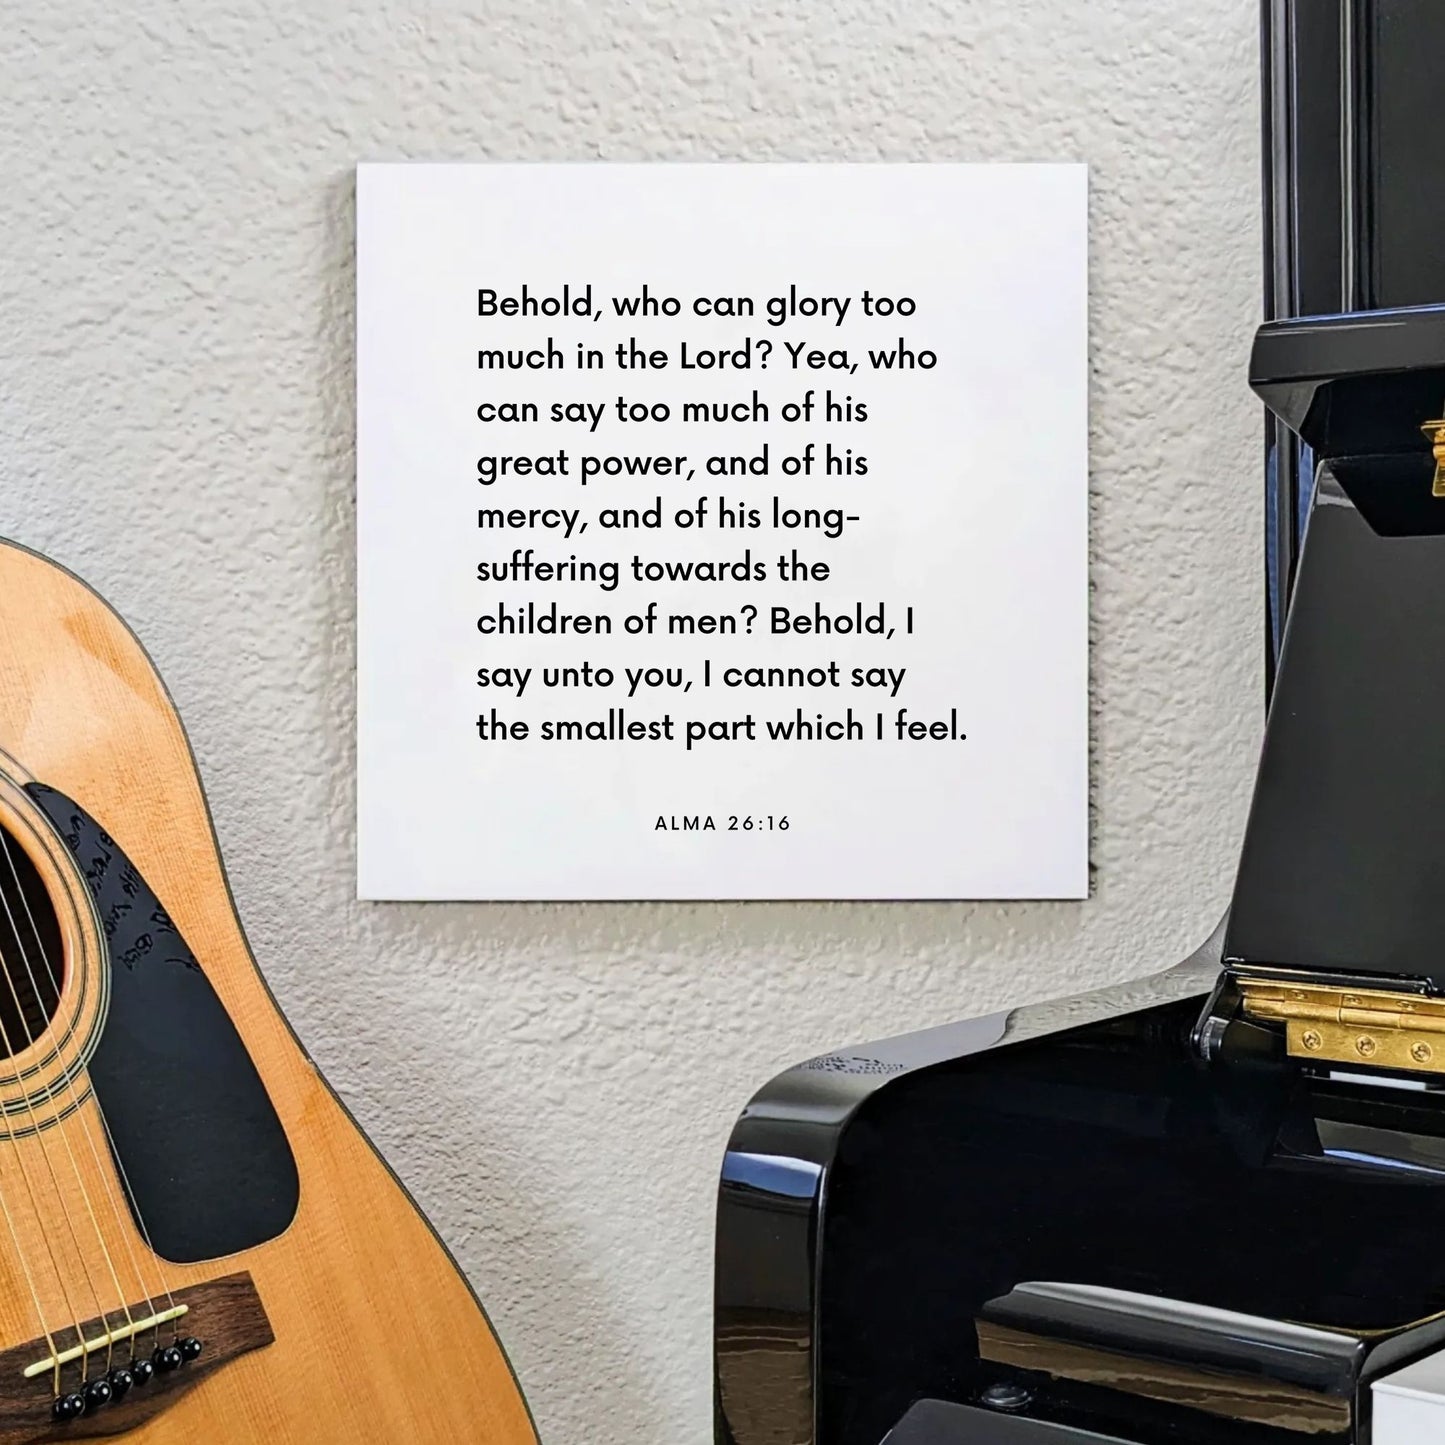 Behold, who can glory too
much in the Lord? Yea, who
can say too much of his
great power, and of his
mercy, and of his long-
suffering towards the
children of men? Behold, I
say unto you, I cannot say
the smallest part which I feel.
ALMA 26:16